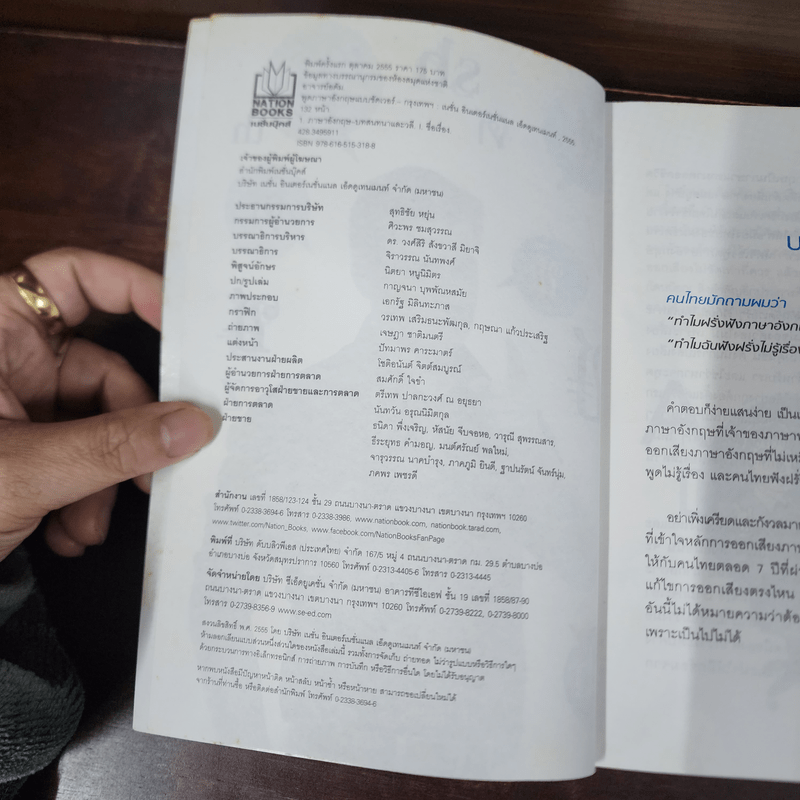 พิมพ์ครั้งแรก ตุลาคม 2555 ราคา 175 บาท
ข้อมูลทางบรรณานุกรมของห้องสมุดแห่งชาติ
อาจารย์อดัม
พูดภาษาอังกฤษแบบชัดเวอร์ - กรุงเทพฯ : เนชั่น อินเตอร์เนชั่นแนล เอ็ดดูเทนเมนท์, 2555
132 หน้า
1. ภาษาอังกฤษ-บทสนทนาและวลี. I. ชื่อเรื่อง.
428.3495911
ISBN 978-616-515-318-8
NATION
BOOKS
เนชั่นบุ๊คส์
เจ้าของผู้พิมพ์ผู้โฆษณา
สำนักพิมพ์เนชั่นบุ๊คส์
บริษัท เนชั่น อินเตอร์เนชั่นแนล เอ็ดดูเทนเมนท์ จำกัด (มหาชน)
ประธานกรรมการบริษัท สุทธิชัย หยุ่น
กรรมการผู้อำนวยการ ศิวะพร ชมสุวรรณ
บรรณาธิการบริหาร ดร. วงศ์สิริ สังขวาสี มิยาจิ
บรรณาธิการ จิราวรรณ นันทพงศ์
พิสูจน์อักษร นิตยา หนูนิมิตร
ปก/รูปเล่ม กาญจนา บุพพัณหสมัย
ภาพประกอบ เอกรัฐ มิลินทะภาส
กราฟิก วรเทพ เสริมธนะพัฒกุล, กฤษณา แก้วประเสริฐ
ถ่ายภาพ เจษฎา ชาติมนตรี
แต่งหน้า ปัทมาพร คาระมาตร์
ประสานงานฝ่ายผลิต โชติอนันต์ จิตต์สมบูรณ์
ผู้อำนวยการฝ่ายการตลาด สมศักดิ์ ใจขำ
ผู้จัดการอาวุโสฝ่ายขายและการตลาด ตรีเทพ ปาลกะวงศ์ ณ อยุธยา
ฝ่ายการตลาด นันทวัน อรุณนิมิตกุล
ฝ่ายขาย ธนิดา พึ่งเจริญ, หัสนัย จีบจอหอ, วารุณี สุพรรณสาร,
ธีระยุทธ คำมอญ, มนต์ศรัณย์ พลใหม่,
จารุวรรณ นาคบำรุง, ภาคภูมิ ยินดี, ฐาปนรัตน์ จันทร์นุ่ม,
ภคพร เพชรดี
สำนักงาน เลขที่ 1858/123-124 ชั้น 29 ถนนบางนา-ตราด แขวงบางนา เขตบางนา กรุงเทพฯ 10260
โทรศัพท์ 0-2338-3694-6 โทรสาร 0-2338-3986, www.nationbook.com, nationbook.tarad.com,
www.twitter.com/Nation_Books, www.facebook.com/NationBooksFanPage
พิมพ์ที่ บริษัท ดับบลิวพีเอส (ประเทศไทย) จำกัด 167/5 หมู่ 4 ถนนบางนา-ตราด กม. 29.5 ตำบลบางบ่อ
อำเภอบางบ่อ จังหวัดสมุทรปราการ 10560 โทรศัพท์ 0-2313-4405-6 โทรสาร 0-2313-4445
จัดจำหน่ายโดย บริษัท ซีเอ็ดยูเคชั่น จำกัด (มหาชน) อาคารทีซีไอเอฟ ชั้น 19 เลขที่ 1858/87-90
ถนนบางนา-ตราด แขวงบางนา เขตบางนา กรุงเทพฯ 10260 โทรศัพท์ 0-2739-8222, 0-2739-8000
โทรสาร 0-2739-8356-9 www.se-ed.com
สงวนลิขสิทธิ์ พ.ศ. 2555 โดย บริษัท เนชั่น อินเตอร์เนชั่นแนล เอ็ดดูเทนเมนท์ จำกัด (มหาชน)
ห้ามลอกเลียนแบบส่วนหนึ่งส่วนใดของหนังสือเล่มนี้ รวมทั้งการจัดเก็บ ถ่ายทอด ไม่ว่ารูปแบบหรือวิธีการใดๆ
ด้วยกระบวนการทางอิเล็กทรอนิกส์ การถ่ายภาพ การบันทึก หรือวิธีการอื่นใด โดยไม่ได้รับอนุญาต
หากพบหนังสือมีปัญหาหน้าติด หน้าสลับ หน้าซ้ำ หรือหน้าหาย สามารถขอเปลี่ยนใหม่ได้
จากร้านที่ท่านซื้อ หรือติดต่อสำนักพิมพ์ โทรศัพท์ 0-2338-3694-6
บ
คนไทยมักถามผมว่า
“ทำไมฝรั่งฟังภาษาอังก
“ทำไมฉันฟังฝรั่งไม่รู้เรื่อง
คำตอบก็ง่ายแสนง่าย เป็นเ
ภาษาอังกฤษที่เจ้าของภาษาพ
ออกเสียงภาษาอังกฤษที่ไม่เห
พูดไม่รู้เรื่อง และคนไทยฟังฝรั่
อย่าเพิ่งเครียดและกังวลมาย
ที่เข้าใจหลักการออกเสียงภาษ
ให้กับคนไทยตลอด 7 ปีที่ผ่า
แก้ไขการออกเสียงตรงไหน
อันนี้ไม่ได้หมายความว่าต้อ
เพราะเป็นไปไม่ได้